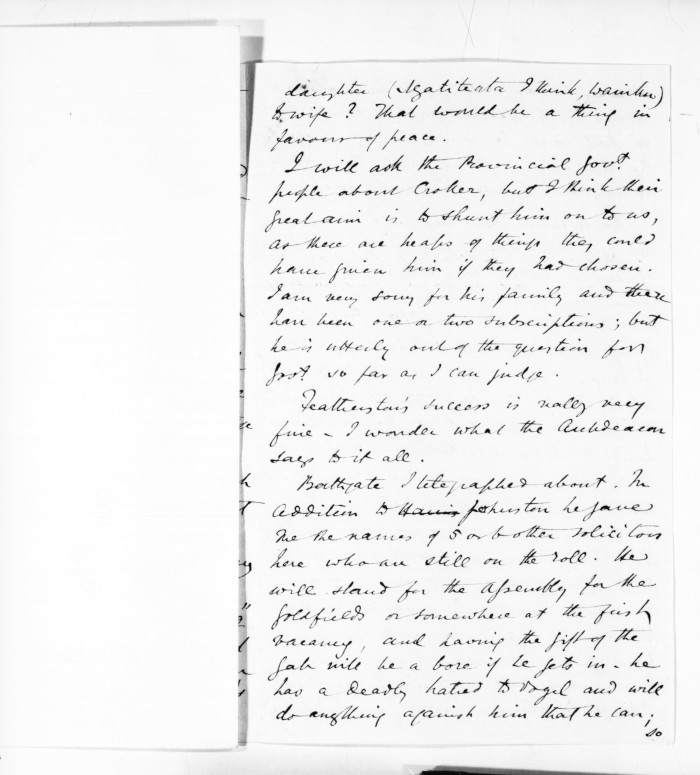 daughter (Ngatiteata I think, Wainhu)
to wife? That would be a thing in
favour of peace.
I will ask the Provincial Govt.
people about Croker, but I think their
great aim is to shunt him on to us,
as there are heaps of things they could
have given him if they had chosen.
I am very sorry for his family and there
have been one or two subscriptions; but
he is utterly out of the question for
Govt. so far as I can judge.
Featherston's success is really very
fine - I wonder what the Archdeacon
says to it all.
Bathgate I telegraphed about. In
addition to Johnston he gave
me the names of 5 or 6 other solicitors
here who are still on the roll. He
will stand for the Assembly for the
Goldfields or somewhere at the first
vacancy, and having the gift of the
gab will be a bore if he gets in - he
has a deadly hatred to Vogel and will
do anything against him that he can;
so